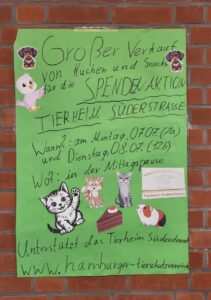 Großer Verkauf
von Kuchen und Snacks
für die SPENDENAKTION
TIERHEIM SÜDERSTRASSE
Wann?: am Montag, 07.07. (7a)
und Dienstag, 08.07. (12b)
Wo?: in der Mittagspause
Unterstützt das Tierheim Süderstrasse
www.hamburger-tierschutzverein.de